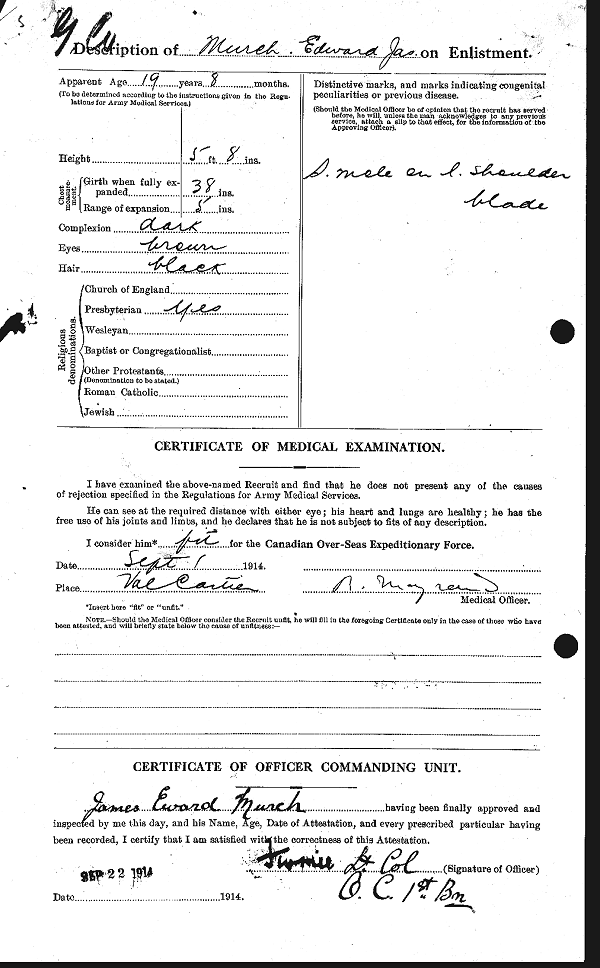 Description of Murch. Edward Jas. on Enlistment.
Apparent Age 19 years 8 months.
(To be determined according to the instructions given in the Regu-
lations for Army Medical Services.)
Height 5 ft. 8 ins.
Chest
measure-
ment.
Girth when fully ex-
panded 38 ins.
Range of expansion 5 ins.
Complexion dark
Eyes brown
Hair black
Religious
denominations.
Church of England
Presbyterian yes
Wesleyan
Baptist or Congregationalist
Other Protestants
(Denomination to be stated.)
Roman Catholic
Jewish
Distinctive marks, and marks indicating congenital
peculiarities or previous disease.
(Should the Medical Officer be of opinion that the recruit has served
before, he will, unless the man acknowledges to any previous
service, attach a slip to that effect, for the information of the
Approving Officer).
S. mole on l. shoulder
blade
CERTIFICATE OF MEDICAL EXAMINATION.
I have examined the above-named Recruit and find that he does not present any of the causes
of rejection specified in the Regulations for Army Medical Services.
He can see at the required distance with either eye; his heart and lungs are healthy; he has the
free use of his joints and limbs, and he declares that he is not subject to fits of any description.
I consider him* fit for the Canadian Over-Seas Expeditionary Force.
Date Sept 1 1914.
Place Val Cartier
Medical Officer.
*Insert here "fit" or "unfit."
NOTE.—Should the Medical Officer consider the Recruit unfit, he will fill in the foregoing Certificate only in the case of those who have
been attested, and will briefly state below the cause of unfitness:—
CERTIFICATE OF OFFICER COMMANDING UNIT.
James Eward Murch having been finally approved and
inspected by me this day, and his Name, Age, Date of Attestation, and every prescribed particular having
been recorded, I certify that I am satisfied with the correctness of this Attestation.
Lt Col (Signature of Officer)
O. C. 1st Bn
SEP 22 1914
Date 1914.